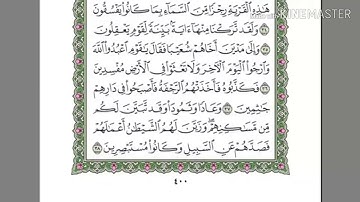 هَٰذِهِ ٱلْقَرْيَةِ رِجْزًا مِّنَ ٱلسَّمَآءِ بِمَا كَانُوا۟ يَفْسُقُونَ
٣٤ وَلَقَد تَّرَكْنَا مِنْهَآ ءَايَةًۢ بَيِّنَةً لِّقَوْمٍ يَعْقِلُونَ
٣٥ وَإِلَىٰ مَدْيَنَ أَخَاهُمْ شُعَيْبًا فَقَالَ يَٰقَوْمِ ٱعْبُدُوا۟ ٱللَّهَ
وَٱرْجُوا۟ ٱلْيَوْمَ ٱلْـَٔاخِرَ وَلَا تَعْثَوْا۟ فِى ٱلْأَرْضِ مُفْسِدِينَ
٣٦ فَكَذَّبُوهُ فَأَخَذَتْهُمُ ٱلرَّجْفَةُ فَأَصْبَحُوا۟ فِى دَارِهِمْ
جَٰثِمِينَ ٣٧ وَعَادًا وَثَمُودَا۟ وَقَد تَّبَيَّنَ لَكُم
مِّن مَّسَٰكِنِهِمْ ۖ وَزَيَّنَ لَهُمُ ٱلشَّيْطَٰنُ أَعْمَٰلَهُمْ
فَصَدَّهُمْ عَنِ ٱلسَّبِيلِ وَكَانُوا۟ مُسْتَبْصِرِينَ ٣٨
٤٠٠
MADE WITH KINEMASTER